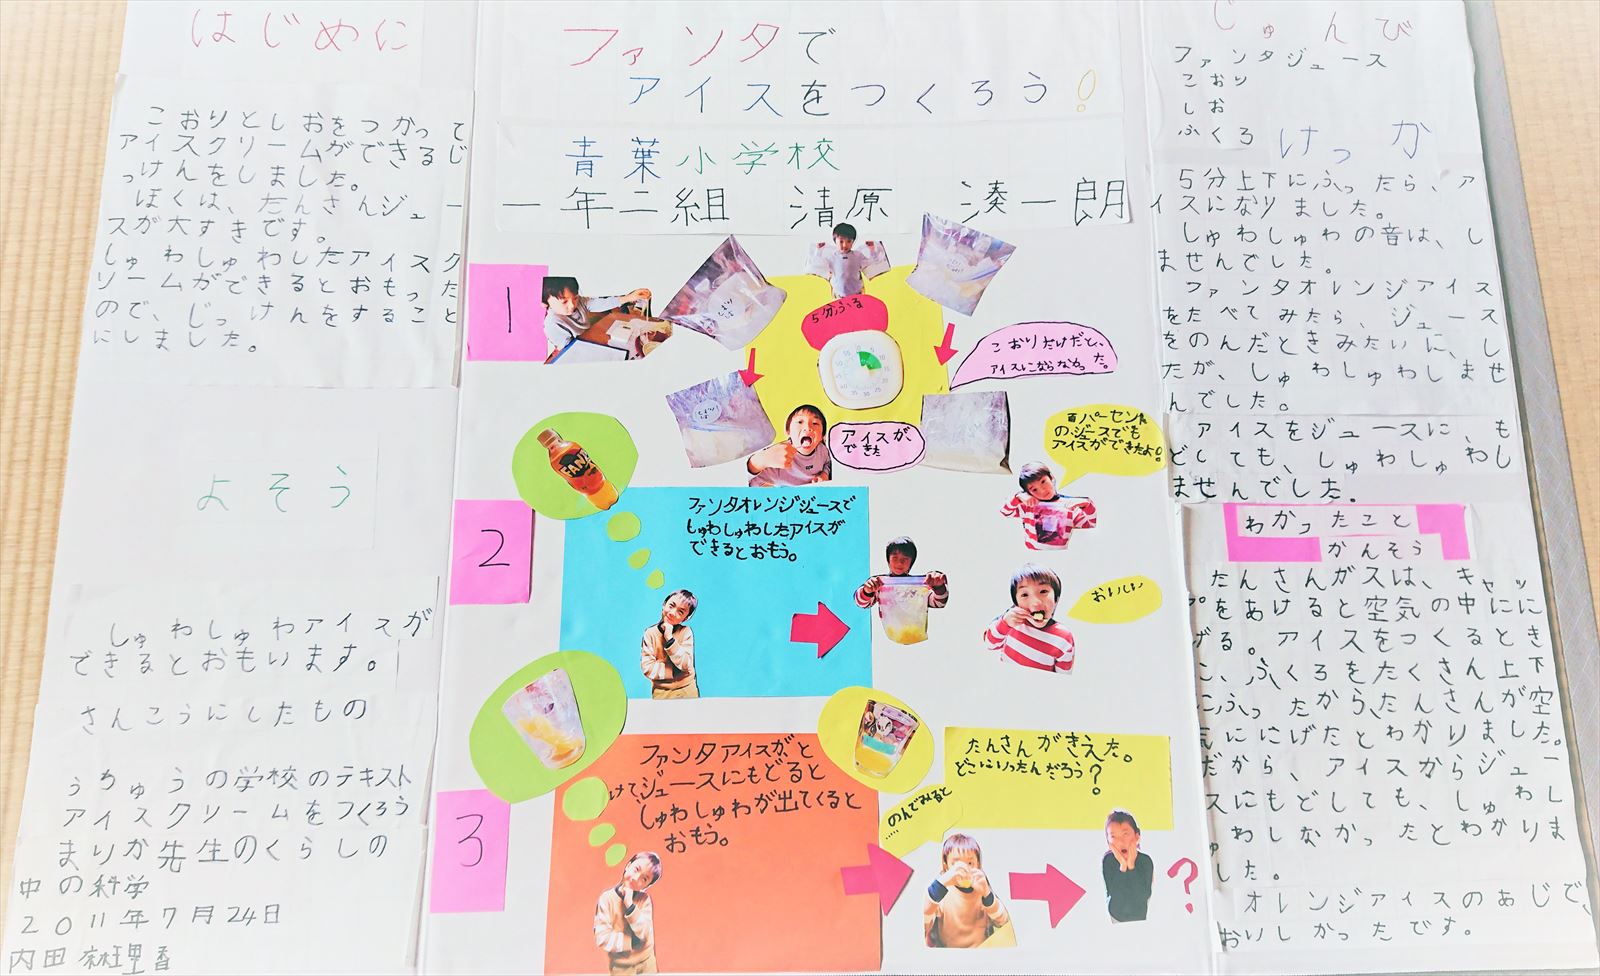 はじめに
こおりとしおをつかって
アイスクリームができるじ
っけんをしました。
ぼくは、たんさんジュー
スが大すきです。
しゅわしゅわしたアイスク
リームができるとおもった
ので、じっけんをすること
にしました。
よそう
しゅわしゅわアイスが
できるとおもいます。
さんこうにしたもの
うちゅうの学校のテキスト
アイスクリームをつくろう
まりか先生のくらしの
中の科学
2011年7月24日
内田麻理香
ファンタで
アイスをつくろう!
青葉小学校
一年二組 清原 湊一朗
1
5分ふる
こおりだけだと、
アイスにならなかった。
アイスが
できた
百パーセント
のジュースでも
アイスができたよ!
2
FANTA
ファンタオレンジジュースで
しゅわしゅわしたアイスが
できるとおもう。
おいしい
3
ファンタアイスがと
けて、ジュースにもどると
しゅわしゅわが出てくると
おもう。
のんでみると
……
たんさんがきえた。
どこにいったんだろう?
?
じゅんび
ファンタジュース
こおり
しお
ふくろ
けっか
5分上下にふったら、ア
イスになりました。
しゅわしゅわの音は、し
ませんでした。
ファンタオレンジアイス
をたべてみたら、ジュース
をのんだときみたいに、し
たが、しゅわしゅわしませ
んでした。
アイスをジュースに、も
どしても、しゅわしゅわし
ませんでした。
わかったこと
かんそう
たんさんガスは、キャッ
プをあけると空気の中にに
げる。アイスをつくるとき
に、ふくろをたくさん上下
にふったから、たんさんが空
気ににげたとわかりました。
だから、アイスからジュー
スにもどしても、しゅわし
ゅわしなかったとわかりま
した。
オレンジアイスのあじで、
おいしかったです。